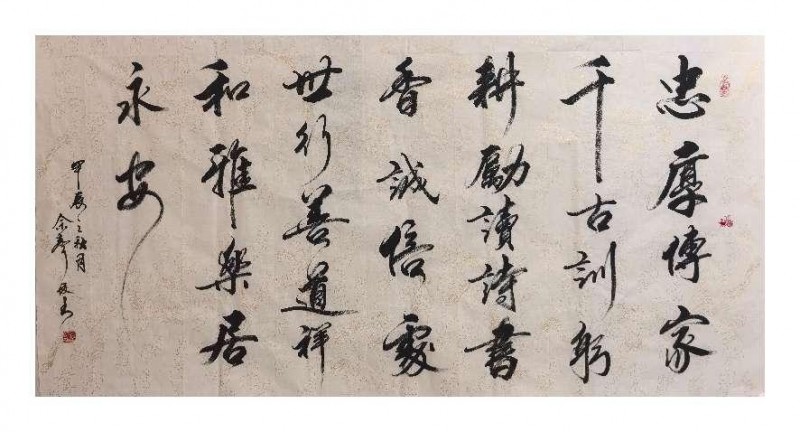 忠厚傳家
千古訓躬
耕勵讀詩書
香誠信處
世行善道祥
和雅樂居
永安
甲辰之秋月
余